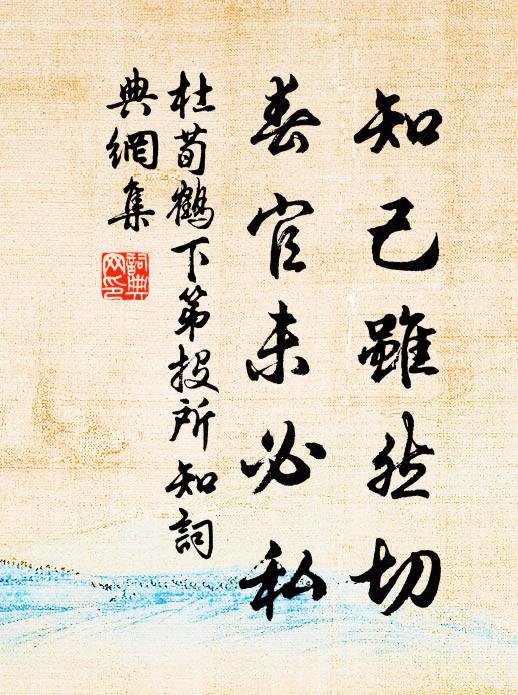 知己雖然切
春官未必私
杜荀鶴下第投所知詞
典網集
詞典
网印